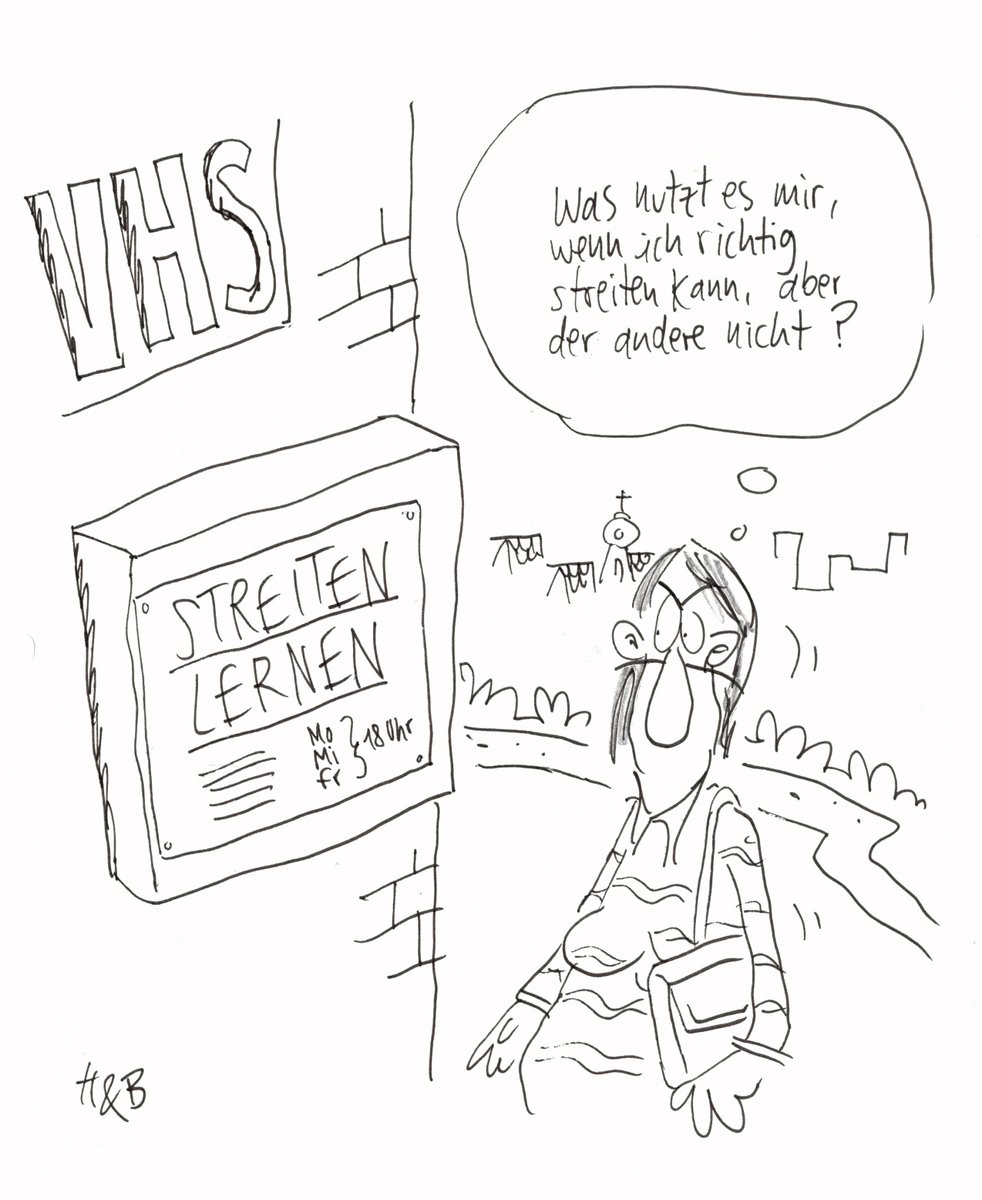 VHS
Was nutzt es mir,
wenn ich richtig
streiten kann, aber
der andere nicht?
STREITEN
LERNEN
Mo
Mi } 18 Uhr
Fr
H&B